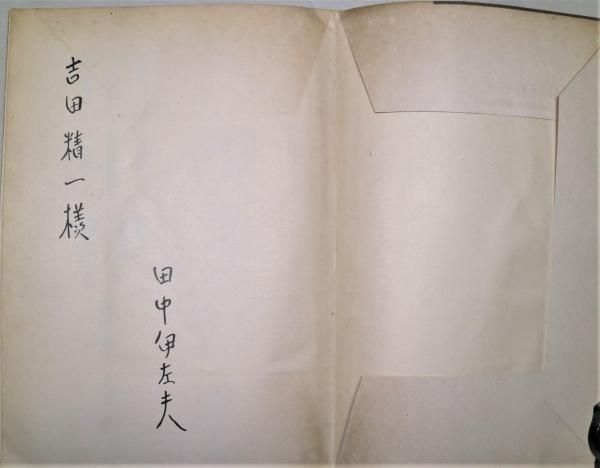 吉田精一様
田中伊左夫